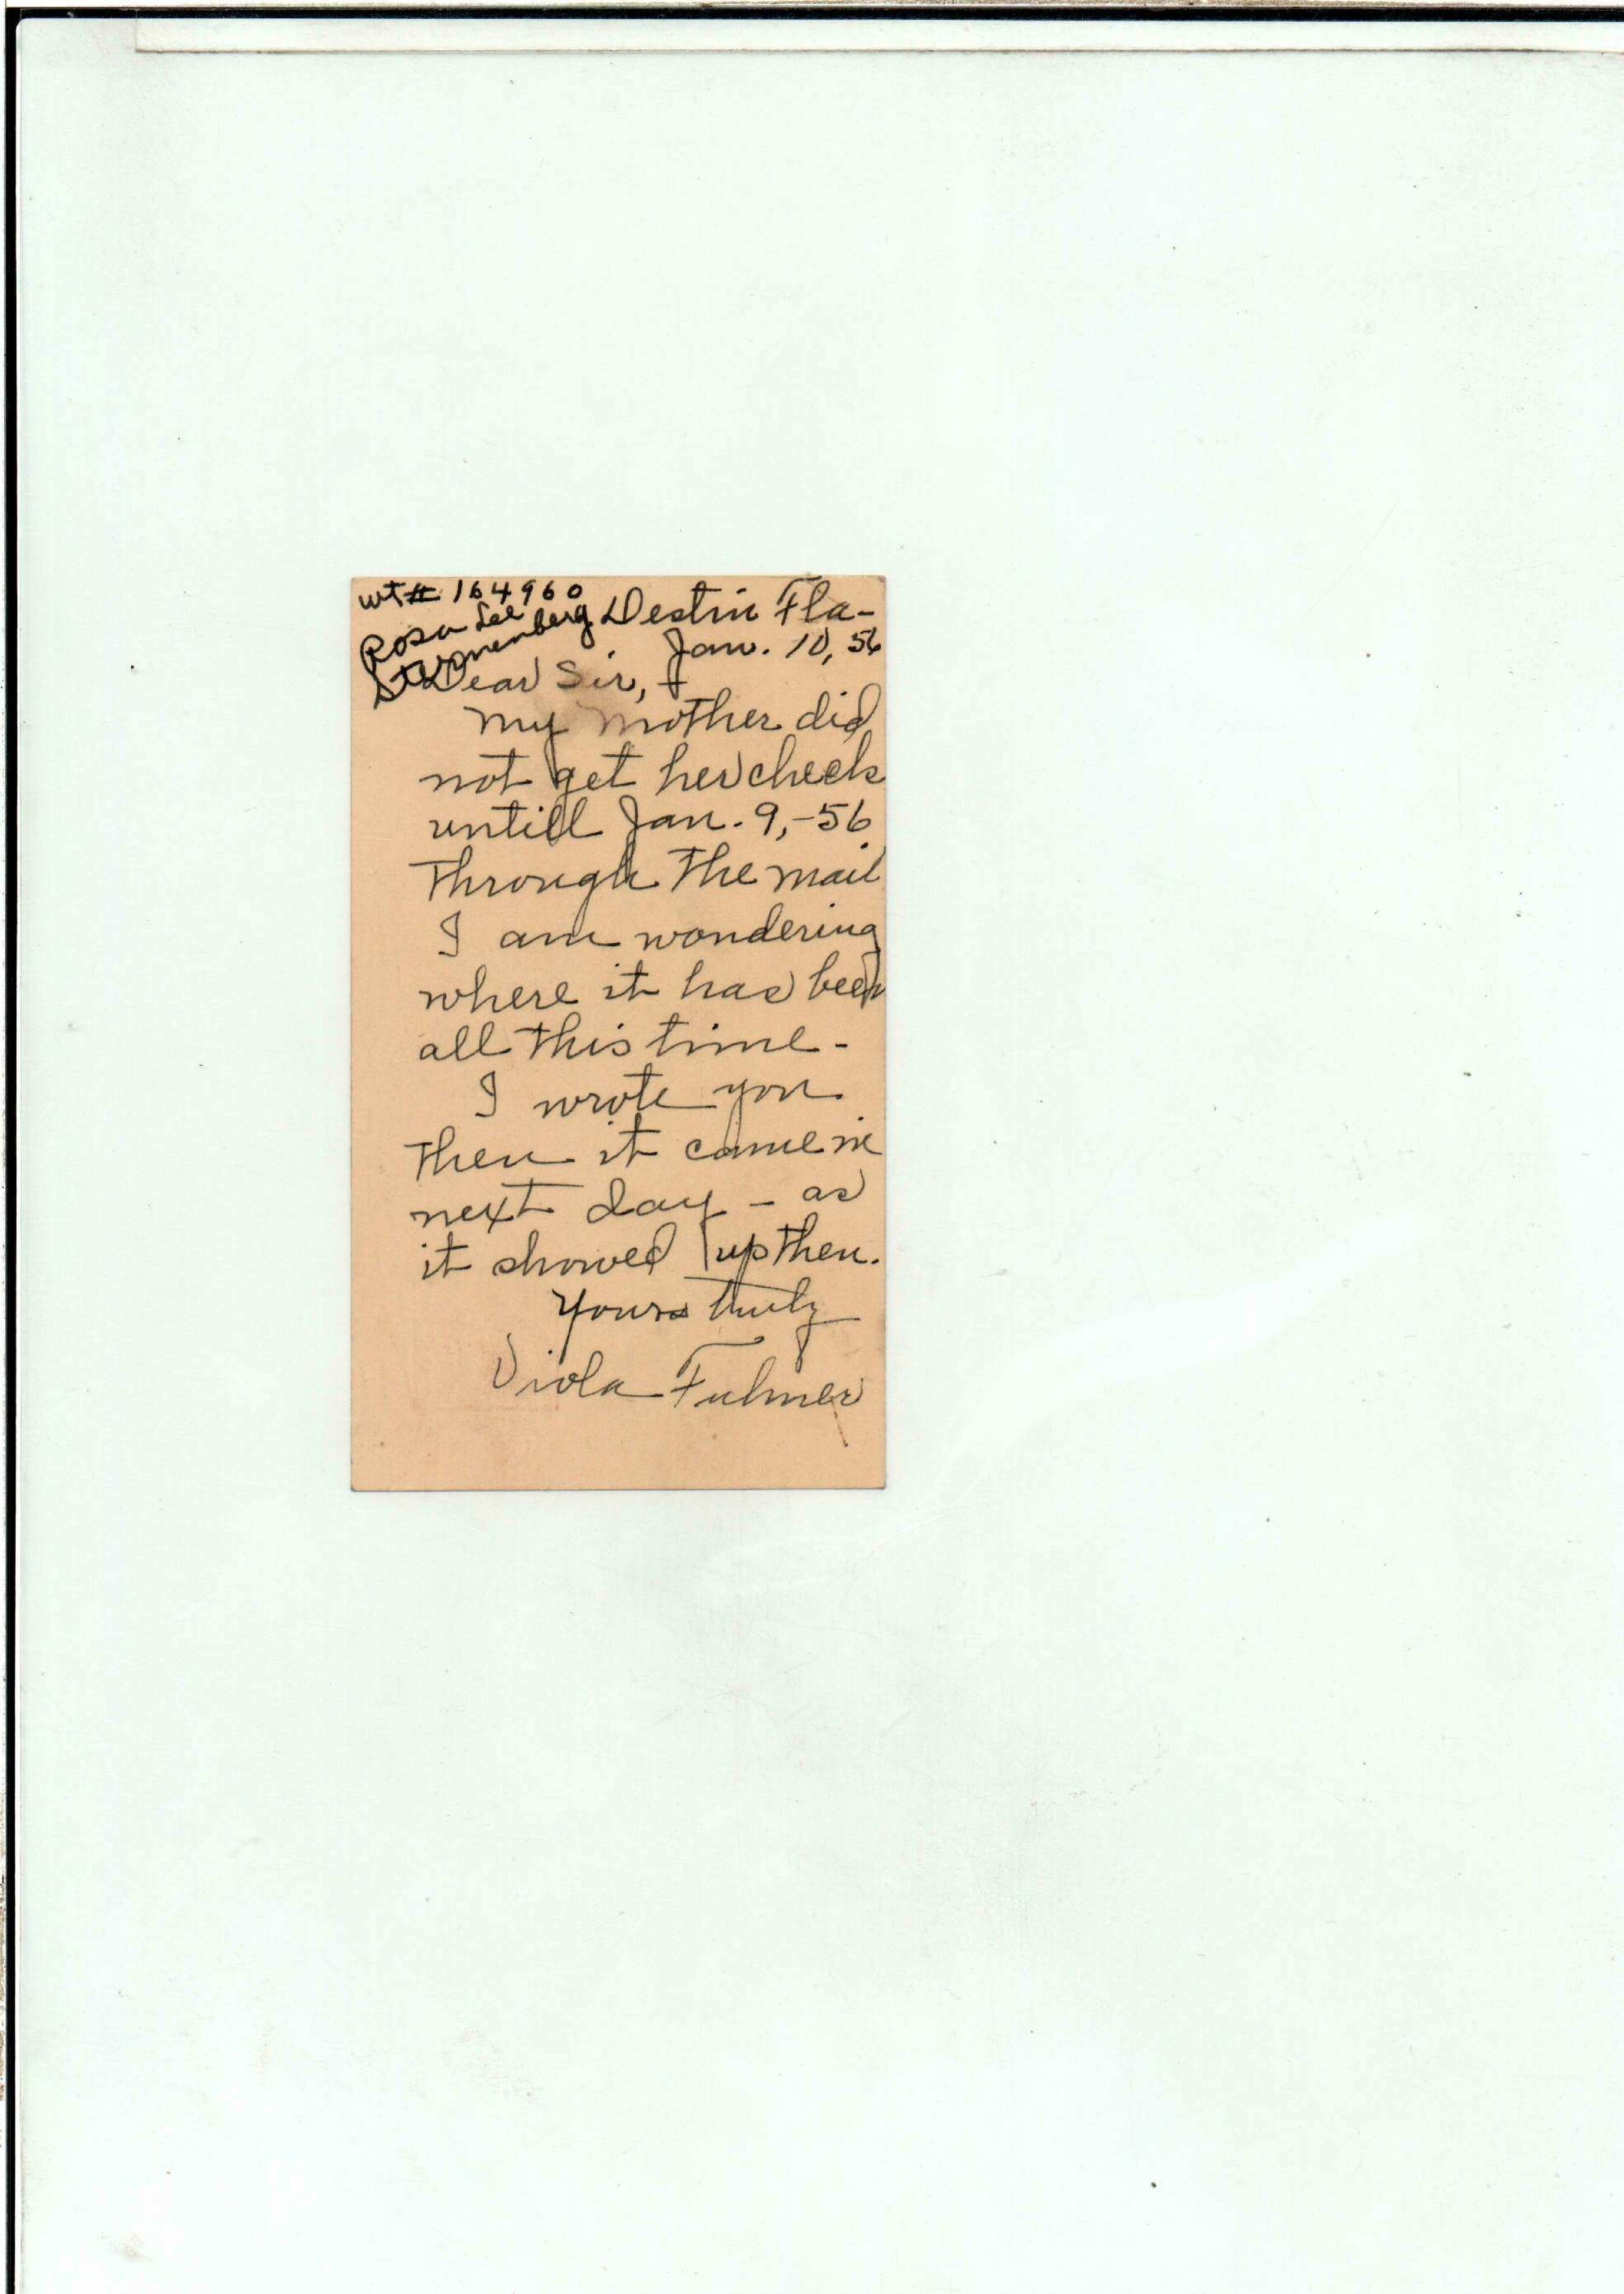 wt# 164960
Rosa Lee
Sternenberg
Destin Fla-
Jan. 10, 56
Dear Sir,
My mother did
not get her check
untill Jan. 9,-56
Through The mail
I am wondering
where it has been
all this time-
I wrote you
Then it came in
next day - as
it showed up then.
Yours truly
Viola Fulmer